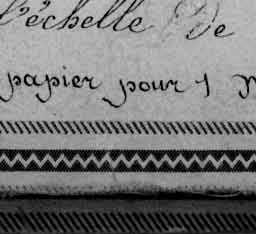 l'échelle De
papier pour 1